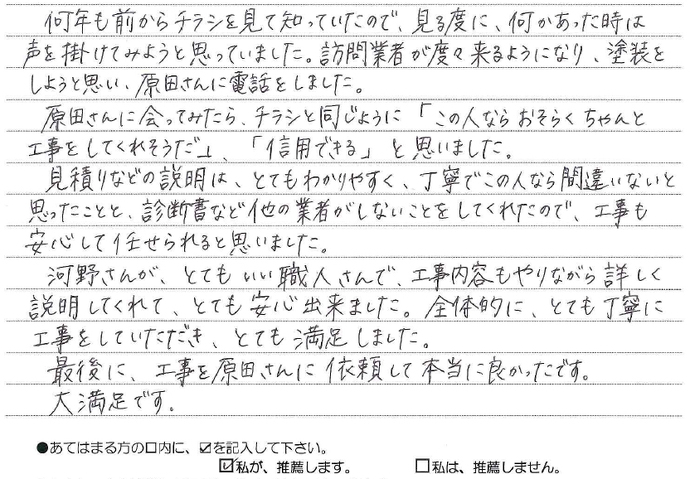 何年も前からチラシを見て知っていたので、見る度に、何かあった時は
声を掛けてみようと思っていました。訪問業者が度々来るようになり、塗装を
しようと思い、原田さんに電話をしました。
原田さんに会ってみたら、チラシと同じように「この人ならおそらくちゃんと
工事をしてくれそうだ」、「信用できる」と思いました。
見積りなどの説明は、とてもわかりやすく、丁寧でこの人なら間違いないと
思ったことと、診断書など他の業者がしないことをしてくれたので、工事も
安心して任せられると思いました。
河野さんが、とてもいい職人さんで、工事内容もやりながら詳しく
説明してくれて、とても安心出来ました。全体的に、とても丁寧に
工事をしていただき、とても満足しました。
最後に、工事を原田さんに依頼して本当に良かったです。
大満足です。
●あてはまる方の口内に、☑を記入して下さい。
☑私が、推薦します。 □私は、推薦しません。